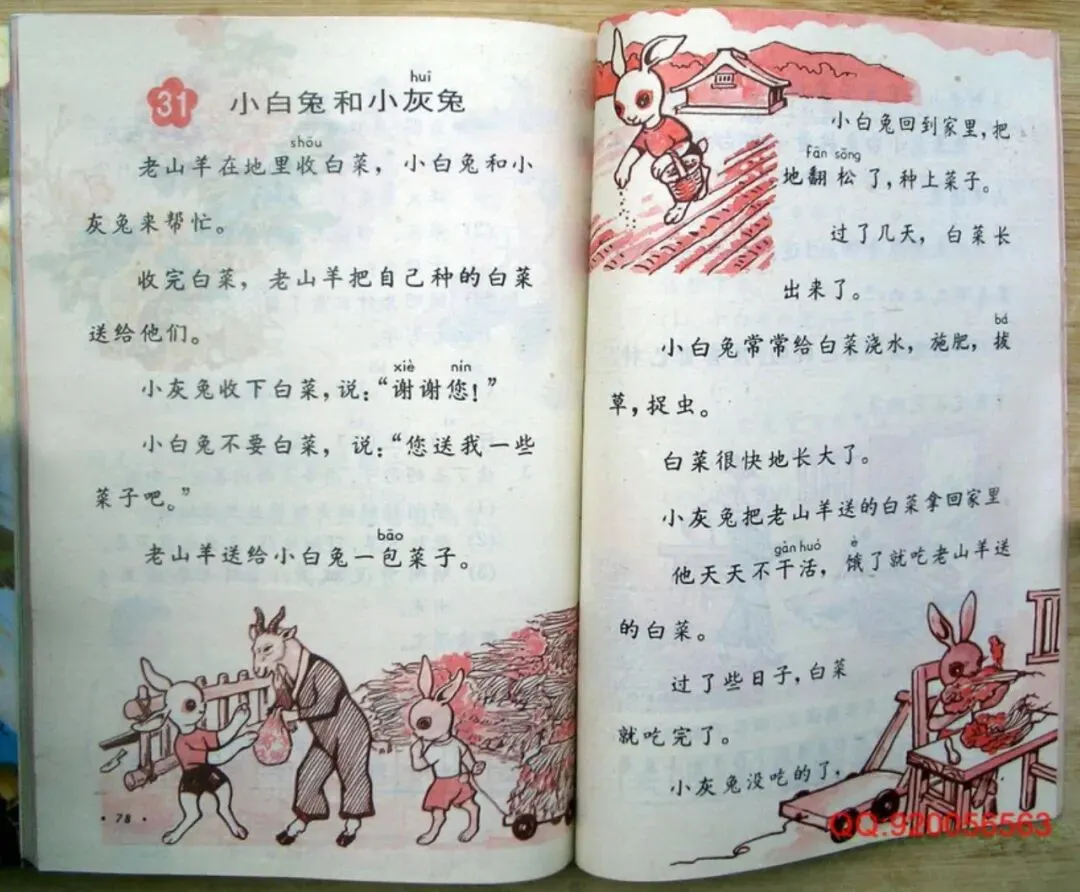 31
huī
小白兔和小灰兔
shōu
老山羊在地里收白菜，小白兔和小
灰兔来帮忙。
收完白菜，老山羊把自己种的白菜
送给他们。
xiè nín
小灰兔收下白菜，说：“谢谢您！”
小白兔不要白菜，说：“您送我一些
菜子吧。”
bāo
老山羊送给小白兔一包菜子。
·78·
小白兔回到家里，把
fān sōng
地翻松了，种上菜子。
过了几天，白菜长
出来了。
bá
小白兔常常给白菜浇水，施肥，拔
草，捉虫。
白菜很快地长大了。
小灰兔把老山羊送的白菜拿回家里
gàn huó è
他天天不干活，饿了就吃老山羊送
的白菜。
过了些日子，白菜
就吃完了。
小灰兔没吃的了，
QQ:920056563